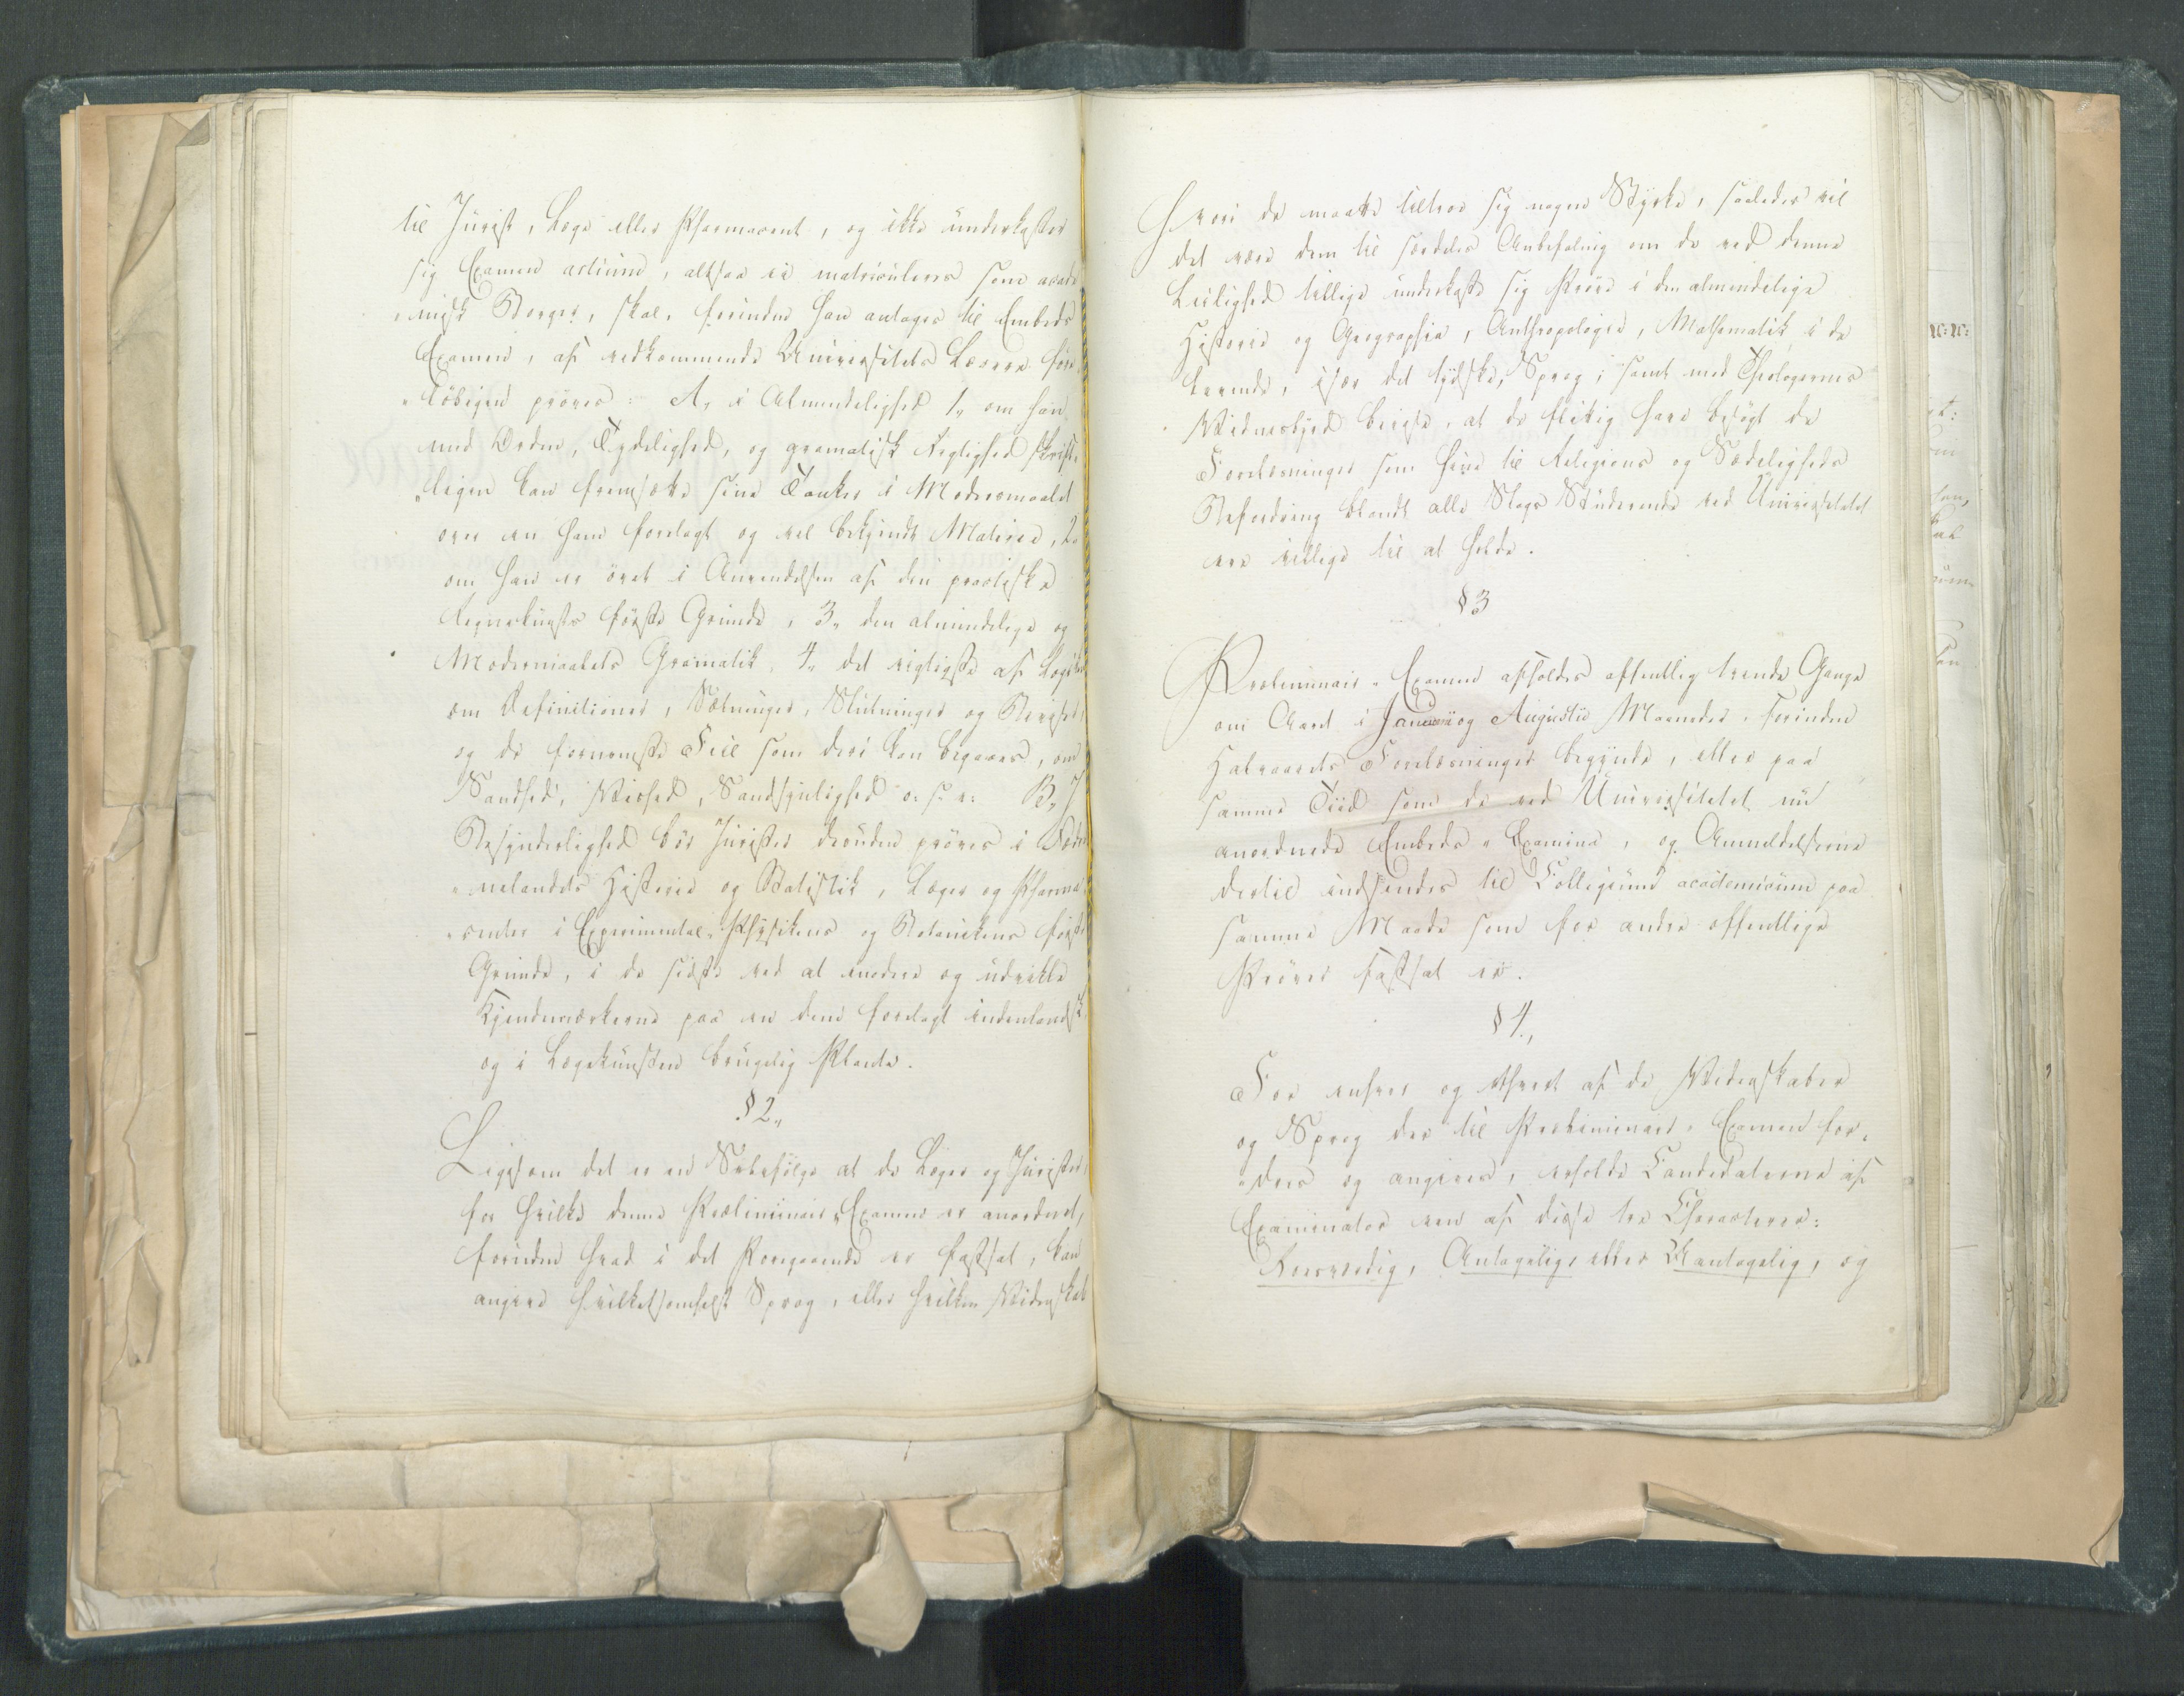 til Jurist, Læge eller Pharmaceut, og ikke underkaster
sig Examen artium, altsaa ei matriculeres som acade
„misk Borger, skal, forinden han antages til Embeds
Examen, af vedkommende Universitets Lærere fore„
„løbigen prøves: A, i Almindelighed 1„ om han
med Orden, Tydelighed, og gramatisk Rigtighed skrift„
„ligen kan fremsætte sine Tanker i Modersmaalet
over en ham forelagt og vel bekjendt Materie, 2„
om han er øvet i Anvendelsen af den practiske
Regnekunsts første Grunde, 3„ den almindelige og
Modersmaalets Gramatik, 4„ det vigtigste af Logiken
om Definitioner, Sætninger, Slutninger og Beviser,
og de fornemste Feil som deri kan begaaes, om
Sandhed, Vished, Sandsynlighed o: s: v: B„ I
Besynderlighed bør Jurister desuden prøves i Fædre
„nelandets Historie og Statistik, Læger og Pharma„
„ceuter i Experimental-Physikens og Botanikens første
Grunde, i de sidste ved at angive og udvikle
Kjendemærkerne paa en dem forelagt indenlandsk
og i Lægekunsten brugelig Plante.
§ 2„
Ligesom det er en Selvfølge at de Læger og Jurister,
for hvilke denne Præliminair„ Examen er anordnet,
foruden hvad i det Foregaaende er fastsat, kan
angive hvilketsomhelst Sprog, eller hvilken Videnskab
hvori de maatte tiltroe sig nogen Styrke, saaledes vil
det være dem til særdeles Anbefaling om de ved denne
Leilighed tillige underkaste sig Prøve i den almindelige
Historie og Geographie, Anthropologie, Mathematik, i de
levende, især det tydske, Sprog; samt med Theologernes
Vidnesbyrd bevise, at de flittig have besøgt de
Forelæsninger som disse til Religions og Sædeligheds
Befordring blandt alle Slags Studerende ved Universitetet
ere villige til at holde.
§ 3
Præliminair„ Examen afholdes offentlig tvende Gange
om Aaret i Januarii og Augustii Maaneder, forinden
Halvaarets Forelæsninger begynde, eller paa
samme Tiid som de ved Universitetet nu
anordnede Embeds„ Examina, og Anmeldelserne
dertil indsendes til Collegium academicum paa
samme Maade som for andre offentlige
Prøver fastsat er.
§ 4.,
For enhver og ethvert af de Videnskaber
og Sprog der til Præliminair„ Examen for„
„dres og angives, erholde Candidaterne af
Examinator een af disse tre Characterer:
Roesværdig, Antagelig, eller Uantagelig, og